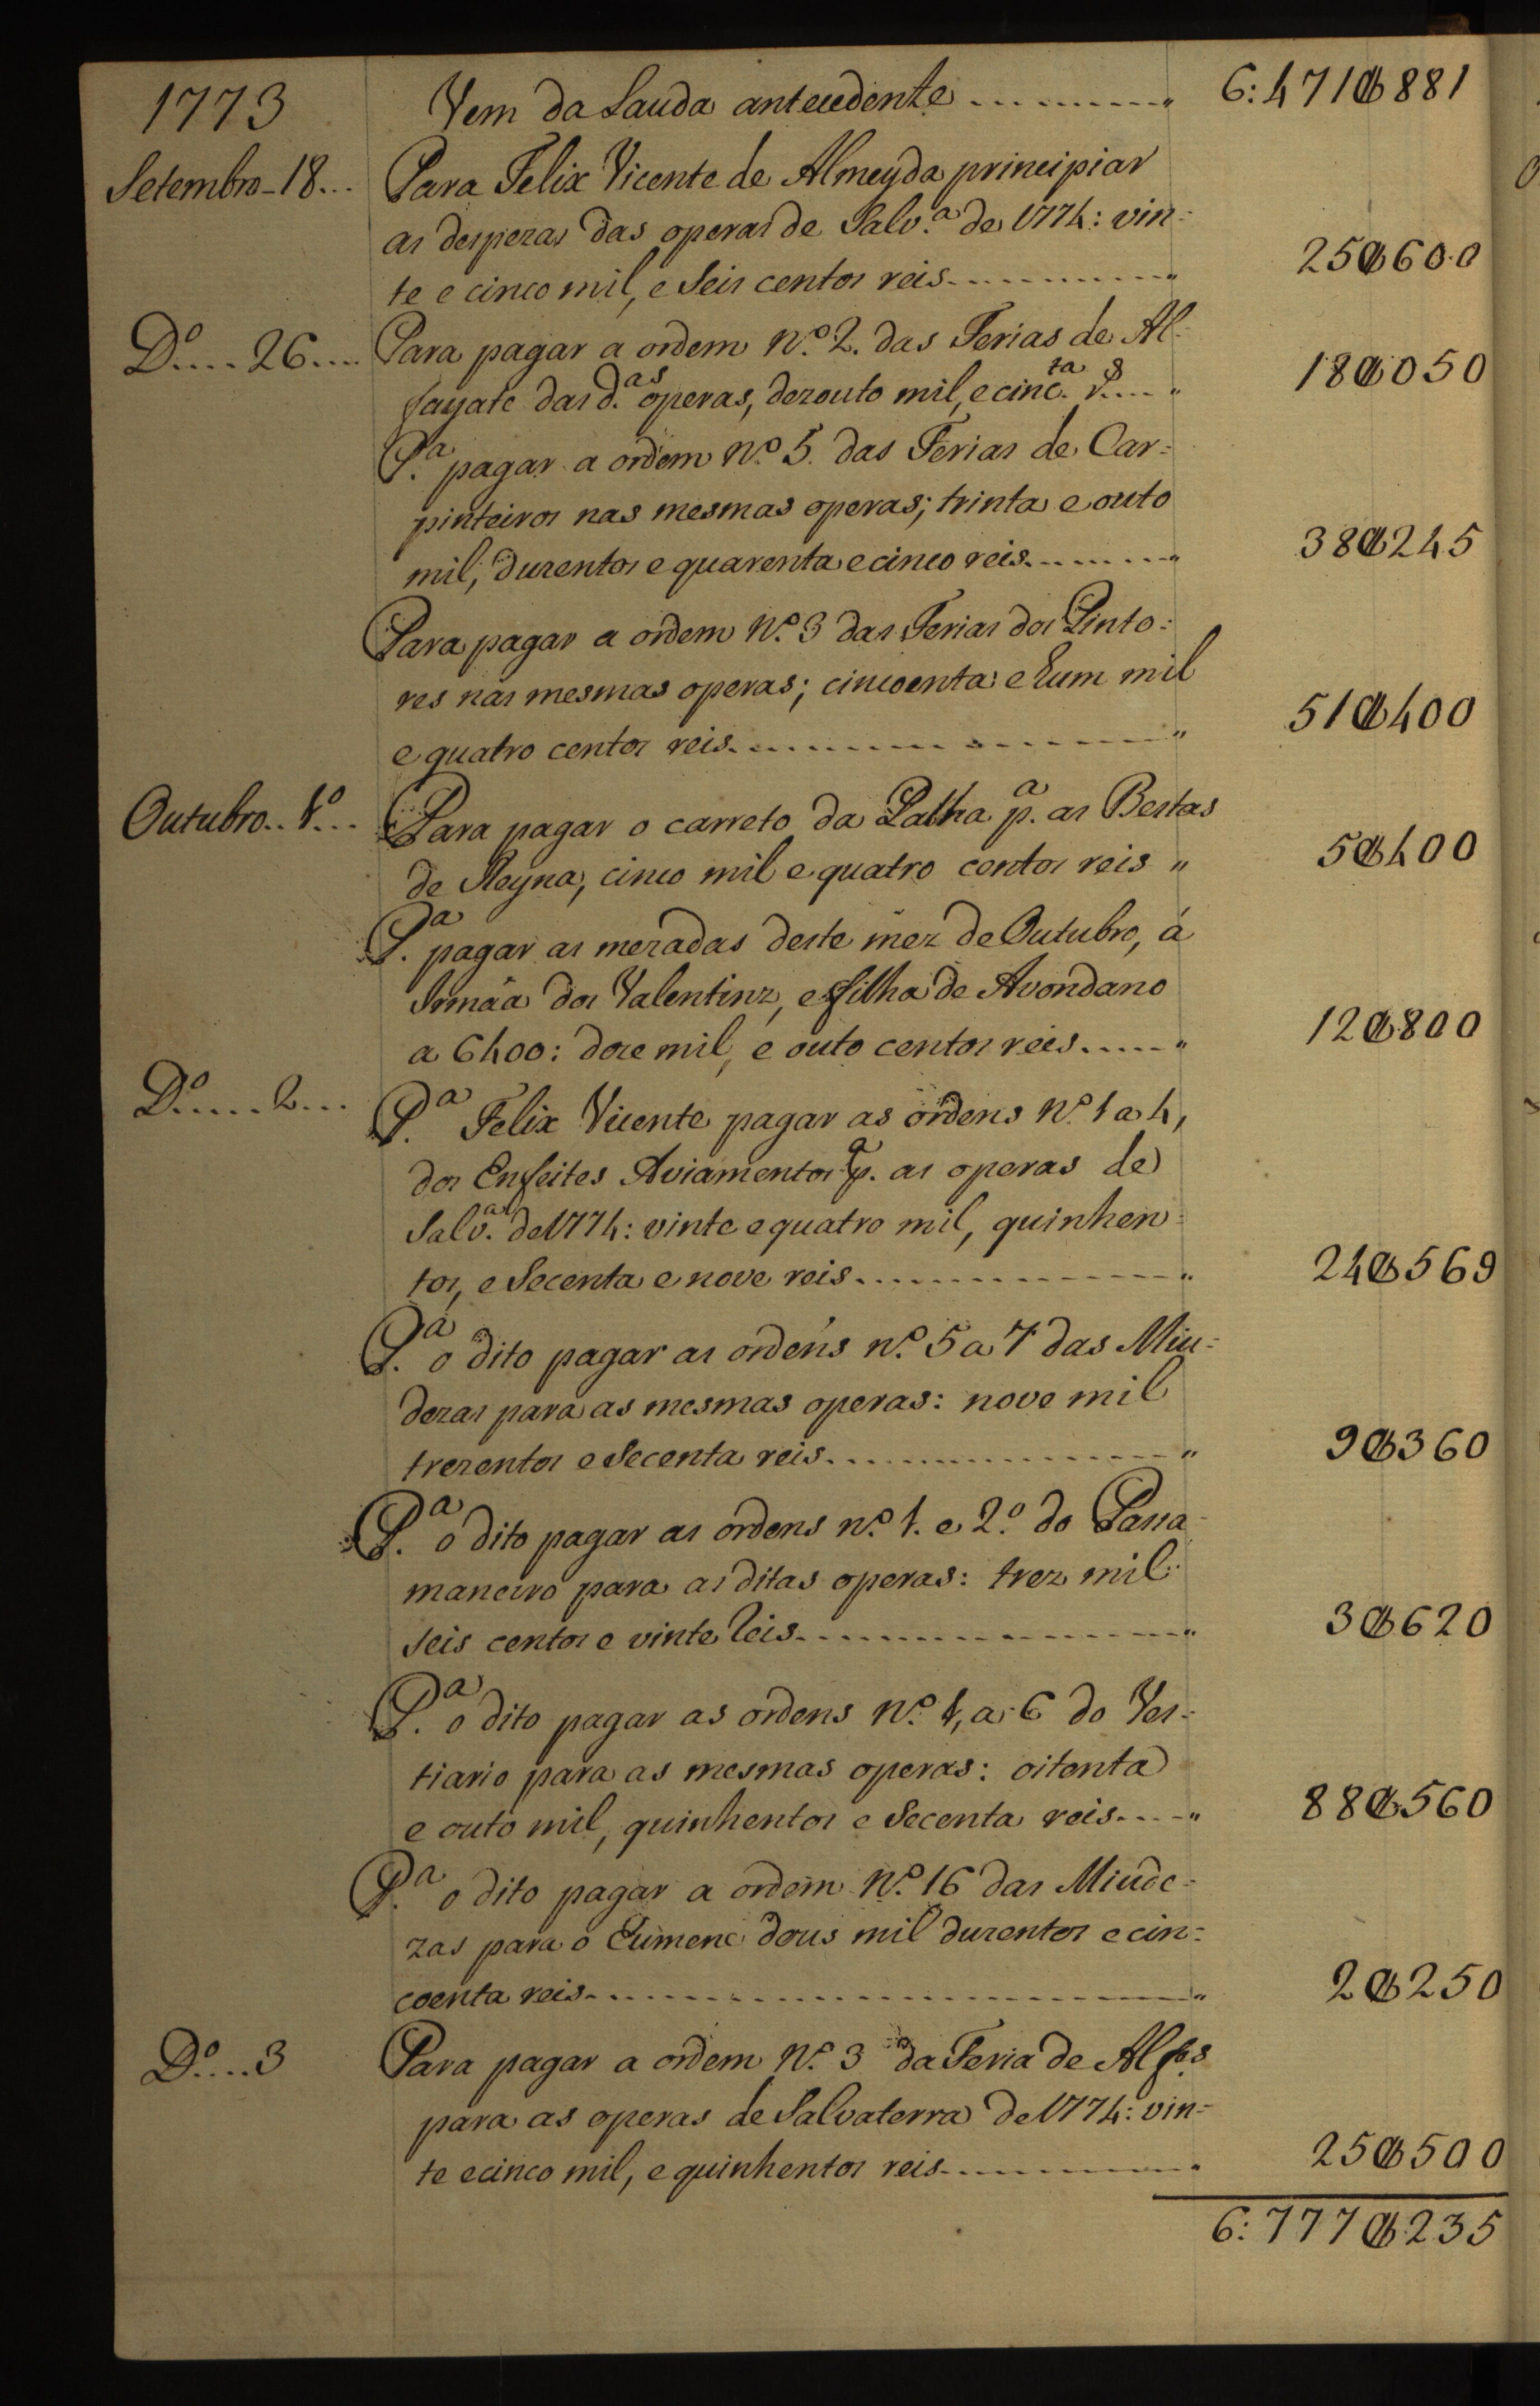 1773 Vem da Lauda antecedente ........... " 6:471$881
Setembro_18... Para Felix Vicente de Almeyda principiar
as despezas das operas de Salv.ª de 1774: vin=
te e cinco mil, e Seis centos reis ........... " 25$600
D.º ... 26 ... Para pagar a ordem N.º 2. das Ferias de Al=
fayate das d.as operas, dezouto mil, e cinc.ta r.s .... " 18$050
P.ª pagar a ordem N.º 5. das Ferias de Car=
pinteiros nas mesmas operas; trinta e outo
mil, duzentos e quarenta e cinco reis ........ " 38$245
Para pagar a ordem N.º 3 das Ferias dos Pinto=
res nas mesmas operas; cincoenta e hum mil
e quatro centos reis ............... " 51$400
Outubro..1.º... Para pagar o carreto da Palha p.ª as Bestas
de Reyna, cinco mil e quatro centos reis " 5$400
P.ª pagar as mezadas deste mez de Outubro, á
Irmãa dos Valentinz, e filha de Avondano
a 6400: doze mil, e outo centos reis ..... " 12$800
D.º .... 2 ... P.ª Felix Vicente pagar as ordens N.º 1 a 4,
dos Enfeites Aviamentos p.ª as operas de
Salv.ª de 1774: vinte e quatro mil, quinhen=
tos, e Secenta e nove reis ............. " 24$569
P.ª o dito pagar as ordens n.º 5 a 7 das Miu=
dezas para as mesmas operas: nove mil
trezentos e Secenta reis ............... " 9$360
P.ª o dito pagar as ordens n.º 1. e 2.º do Passa=
maneiro para as ditas operas: trez mil
seis centos e vinte Reis ................ " 3$620
P.ª o dito pagar as ordens N.º 1, a 6 do Ves=
tiario para as mesmas operas: oitenta
e outo mil, quinhentos e Secenta reis .... " 88$560
P.ª o dito pagar a ordem N.º 16 das Miude=
zas para o Eumene dous mil duzentos e cin=
coenta reis ......................... " 2$250
D.º ... 3 Para pagar a ordem N.º 3 da Feria de Alf.es
para as operas de Salvaterra de 1774: vin=
te e cinco mil, e quinhentos reis ........... " 25$500
6:777$235